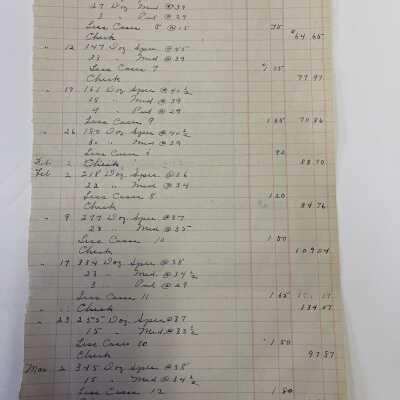 27 Doz Med @ 39
3 " Pul @ 29
Less Cases 5 @ 15 75
Check $64.65
" 12 147 Doz Spec @ 45
23 " Med @ 39
Less Cases 7 1.05
Check 77.97
" 19 161 Doz Spec @ 40½
15 " Med @ 39
4 " Pul @ 29
Less Cases 9 1.35 70.86
" 26 Doz Spec @ 40½
" Med @ 39
Less Cases 6 90
Feb 2 Check
Feb 2 218 Doz Spec @ 36
22 " Med @ 34
Less Cases 8 1.20
Check 84.76
" 9 277 Doz Spec @ 37
23 " Med @ 35
Less Cases 10 1.50
Check 109.04
" 17 334 Doz Spec @ 38
23 " Med @ 34½
3 " Pul @ 29
Less Cases 11 1.65
" Check 134.07
" 23 255 Doz Spec @ 37
15 " Med @ 33½
Less Cases 10 1.50
Check 97.87
Mar 2 345 Doz Spec @ 38
15 " Med @ 34½
Less Cases 12 1.80